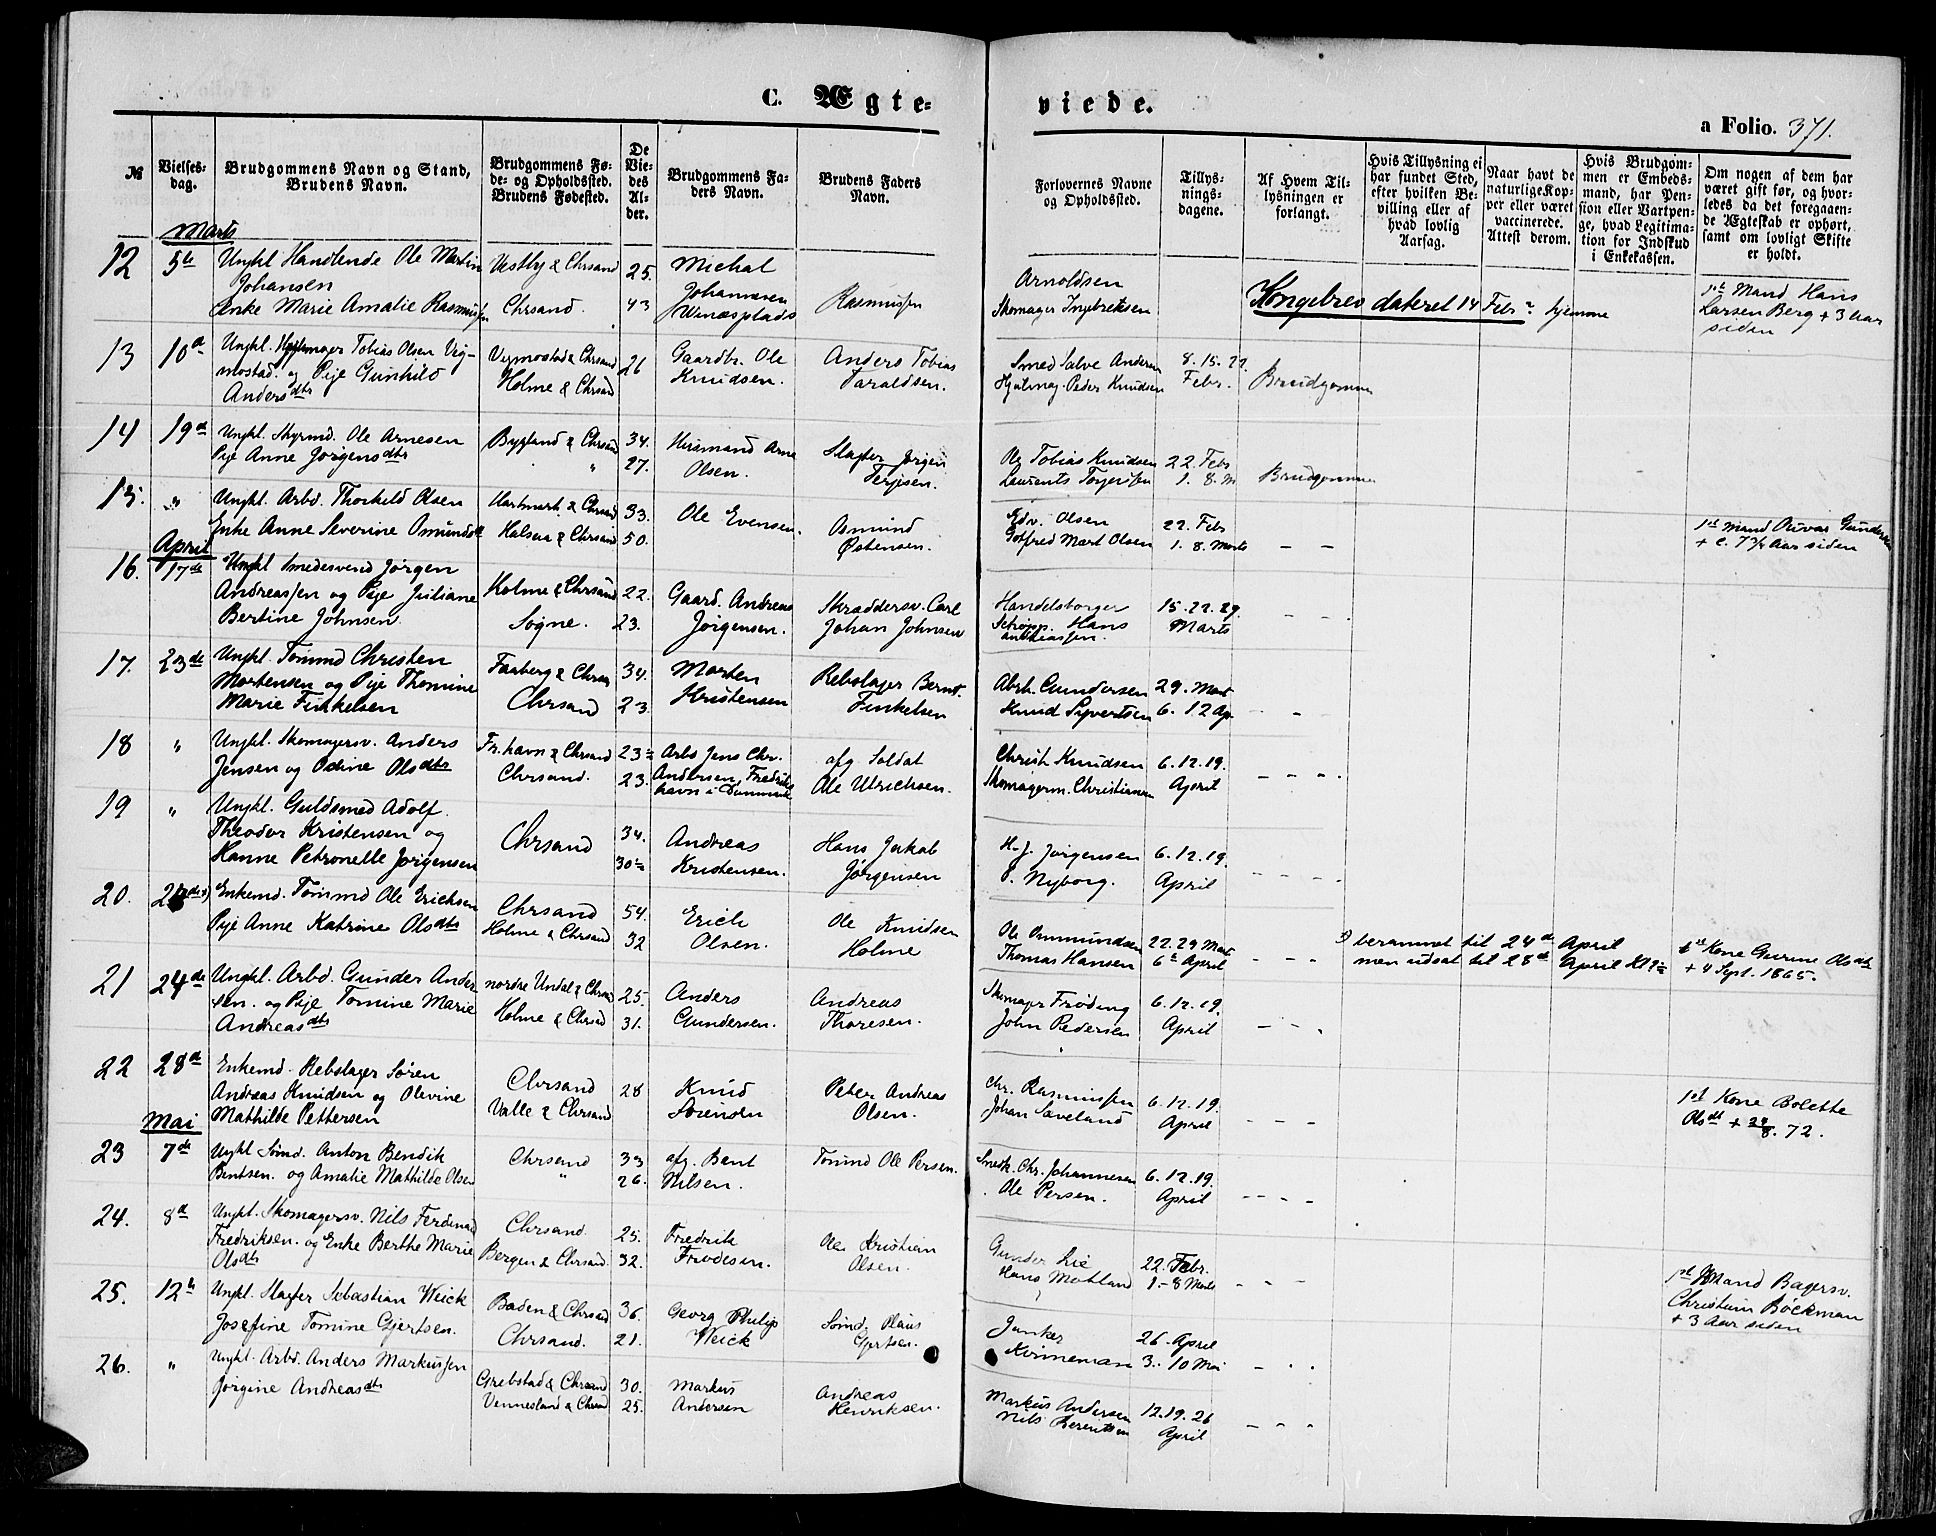 C. Ægte-
viede.
a Folio. 371.
№
Vielses-
dag.
Brudgommens Navn og Stand,
Brudens Navn.
Brudgommens Fø-
de- og Opholdssted.
Brudens Fødested.
De
Vie-
des
Al-
der.
Brudgommens Fa-
ders Navn.
Brudens Faders
Navn.
Forlovernes Navne
og Opholdssted.
Tillys-
nings-
dagene.
Af Hvem Til-
lysningen er
forlangt.
Hvis Tillysning ei
har fundet Sted,
efter hvilken Be-
villing eller af
hvad lovlig
Aarsag.
Naar havt de
naturlige Kop-
per eller været
vaccinerede.
Attest derom.
Hvis Brudgom-
men er Embeds-
mand, har Pen-
sion eller Vartpen-
ge, hvad Legitima-
tion for Indskud
i Enkekassen.
Om nogen af dem har
været gift før, og hvor-
ledes da det foregaaen-
de Ægteskab er ophørt,
samt om lovligt Skifte
er holdt.
Marts
12 5te Ungkl Handlende Ole Martin Vestby & Chrsand 25. Michal
Johansen Johannesen Arnoldsen
Enke Marie Amalie Rasmussen Chrsand. 43 Rasmussen Skomager Ingebretsen Kongebrev dateret 14 Febr. hjemme 1st Mand Hans
Larsen Berg + 3 Aar
siden
13 10d Ungkl. Tobias Olsen Vig- Vigmostad & Chrsand 26 Gaardbr. Ole Anders Tobias Smed Salve Andersen 8. 15. 22.
mostad. og Pige Gunhild Holme & Chrsand Knudsen. Taraldsen. Peder Knudsen Febr. Brudgommen
Andersdtr
14 19d Ungkl. Ole Arnesen Bygland & Chrsand 34. Husmand Arne Slagter Jørgen Ole Tobias Knudsen 22. Febr
Pige Anne Jørgensdtr " 27. Olsen. Terjesen. Laurents 1. 8. M Brudgommen
15. " Ungkl. Arbd. Thorkild Olsen Hartmark. & Chrsand 33. Ole Evensen. Osmund Edv. Olsen 22. Febr 1st Mand Gundersen
Enke Anne Severine Osmundsd Halsaa & Chrsand 50. Østensen. Gotfred Mart Olsen 1. 8. Marts – – + c. 7 1/2 Aar siden
April
16. 17de Ungkl Smedesvend Jørgen
Andreassen og Pige Juliane Holme & Chrsand 22. Gaard. Andreas Skræddersv. Carl Handelsborger 15. 22. 29.
Bertine Johnsen. Sogne. 23. Jørgensen. Johan Johnsen Hans Marts - - .
17. 23de Ungkl. Tømmd Christen Faaberg & Chrsa 34. Morten Rebslager Bernt. Abrh. Gundersen 29. Mart
Mortensen og Pige Thomine Chrsand 23. Kristensen Finkelsen Knud Syvertsen 6. 12 Ap. - - -
Marie Finkelsen
18 " Ungkl. Skomagersv. Anders Fr.havn & Chrsand 23 Arbd Jens Chr. afg Soldat Christ Knudsen 6. 12. 19.
Jensen og Odine Olsdtr Chrsand. 23. Andersen, Fredriks Ole Ulrichsen. Skomagerm. Christiansen April - - - .
havn i Danmark
19 " Ungkl. Guldsmed Adolf
Theodor Kristensen og Chrsand 34. Andreas Hans Jakob H. J. Jørgensen 6. 12. 19.
Hanne Petronelle Jørgensen 30 Kristensen. Jørgensen P. Nyborg. April - - - -
20. Enkemd. Tømmd Ole Erichsen Chrsand 54. Erich Ole Knudsen Ole Ommundsen 22. 29 Mart berammet til 24de April 1st Kone Gurine Olsdtr
Pige Anne Katrine Olsdtr Holme & Chrsand 32 Olsen. Holme Thomas Hansen 6te April - - - men udsat til 28de April + 4 Sept. 1865.
21 24de Ungkl. Arbd. Gunder Ander nordre Undal & Chrsand 25. Anders Andreas Skomager Frøding 6. 12. 19.
sen. og Pige Tomine Marie Holme & Chrsad 31. Gundersen. Thoresen. John Pedersen April - - .
Andreasdtr
22 28d Enkemd. Rebslager Søren Chrsand 28 Knud Peter Andreas Chr. Rasmussen 6. 12. 19. 1st Kone Bolette
Andreas Knudsen og Olevine Valle & Chrsand Sørensen Olsen. Johan Saveland April - - - Olsdt + 29/8. 72.
Mathilde Pettersen
Mai
23 7de Ugkl Sømd. Anton Bendik Chrsand 33 afg. Bent Tømmd Ole Persen. Chr. Johannesen 6. 12. 19.
Bentsen. og Amalie Mathilde Olsen " 26. Nilsen. Ole Persen. April - - - -
24. 8d Ungkl. Skomagersv. Nils Ferdinad Chrsand. 25. Fredrik Ole Kristian Gunder Lie 22. Febr. 1st Mand Bagersv.
Fredriksen. og Enke Berthe Marie Bergen & Chrsand. 32. Olsen. Hans Møtland 1. - 8 Marts - - - Christian Böckman
Olsdtr + 3 Aar siden
25. 12te Ungkl. Slagter Sebastian Weick Baden & Chrsand 36. Georg Philip Sømd. Junker 26. April
Josefine Tomine Gjertsen. Chrsand. 21. Weick Gjertsen. Kinneman 3. 10 Mai - . .
26. " Ungkl. Arbd. Anders Markussen Grebstad & Chrsand 30. Markus Andreas Markus Andersen 12. 19. 26
Jørgine Andreasdtr Vennesland & Chrsad 25. Andersen Henriksen. Nils Berentsen April - - -